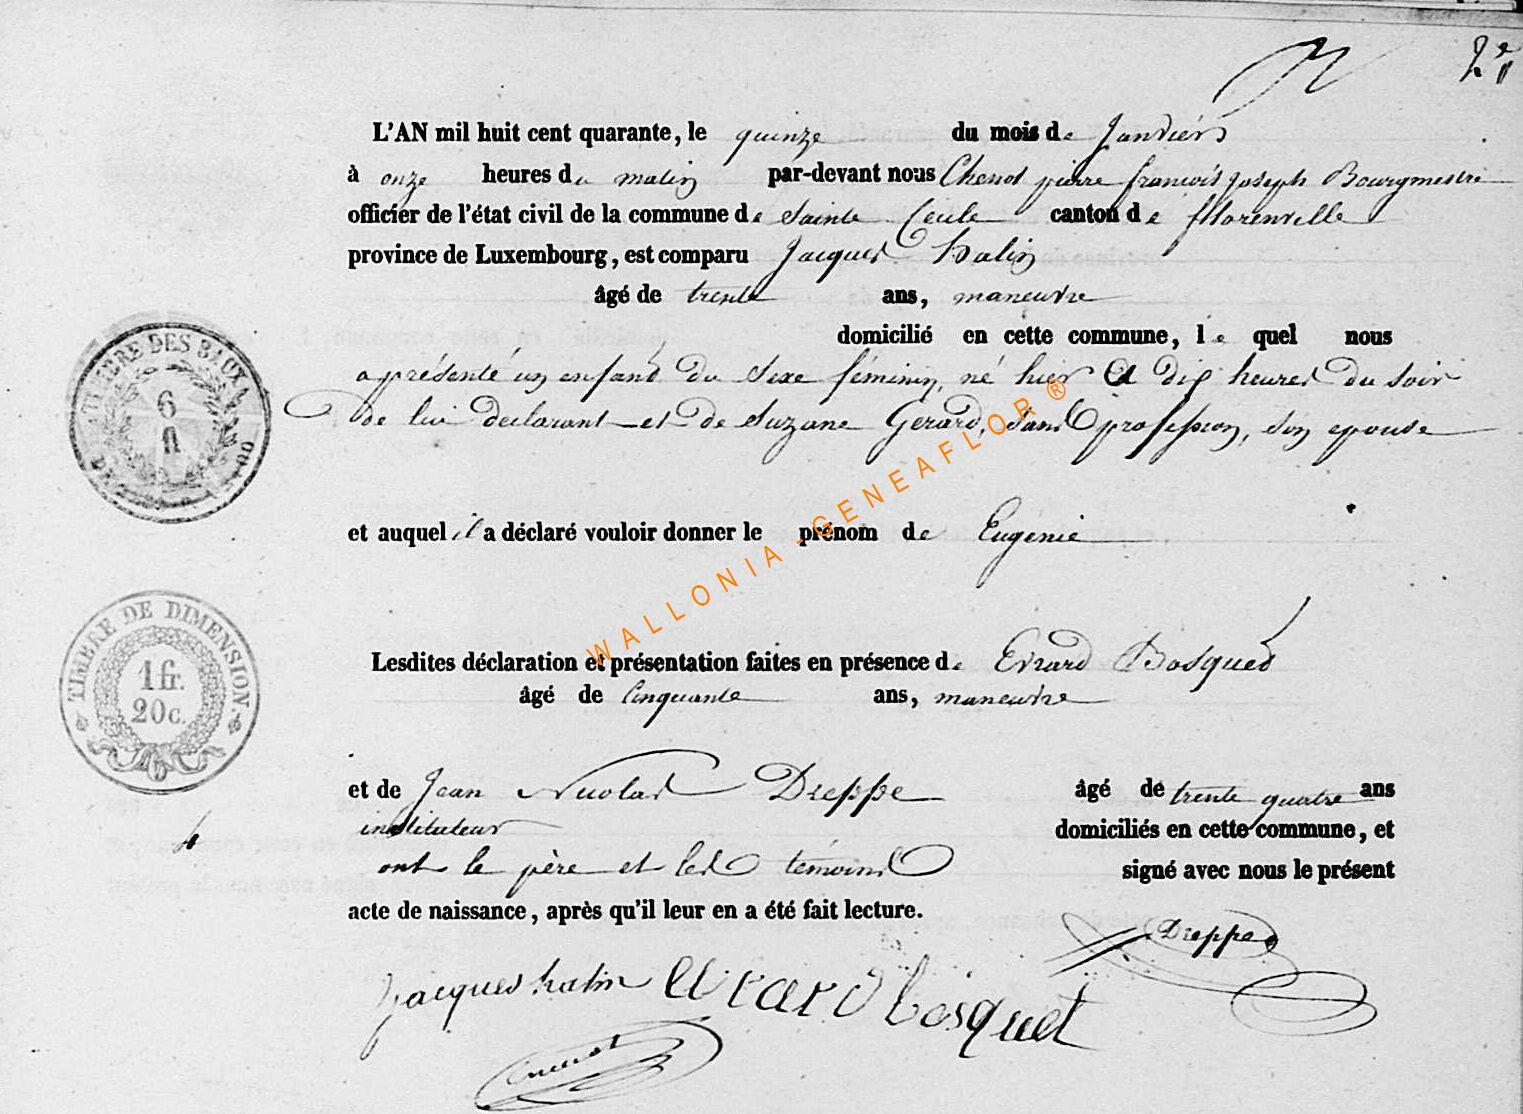 2e
L'AN mil huit cent quarante, le quinze du mois de Janvier
à onze heures du matin par-devant nous Chenot pierre francois Joseph Bourgmestre
officier de l'état civil de la commune de Sainte Cecile canton de fflorenville
province de Luxembourg, est comparu Jacques Halin
âgé de trente ans, maneuvre
domicilié en cette commune, le quel nous
a présenté un enfant du Sexe féminin, né hier a dix heures du soir
de lui declarant et de Suzane Gerard, sans profession, son epouse
et auquel il a déclaré vouloir donner le prénom de Eugénie
Lesdites déclaration et présentation faites en présence de Evrard Bosquet
âgé de Cinquante ans, maneuvre
et de Jean Nicolas Dreppe âgé de trente quatre ans
instituteur domiciliés en cette commune, et
ont le père et les témoins signé avec nous le présent
acte de naissance, après qu'il leur en a été fait lecture.
Dreppe
jacques halin evrard bosquet
Chenot
TIMBRE DES BAUX
6
TIMBRE DE DIMENSION
1 fr.
20 c.
WALLONIA - GENEAFLOR ®